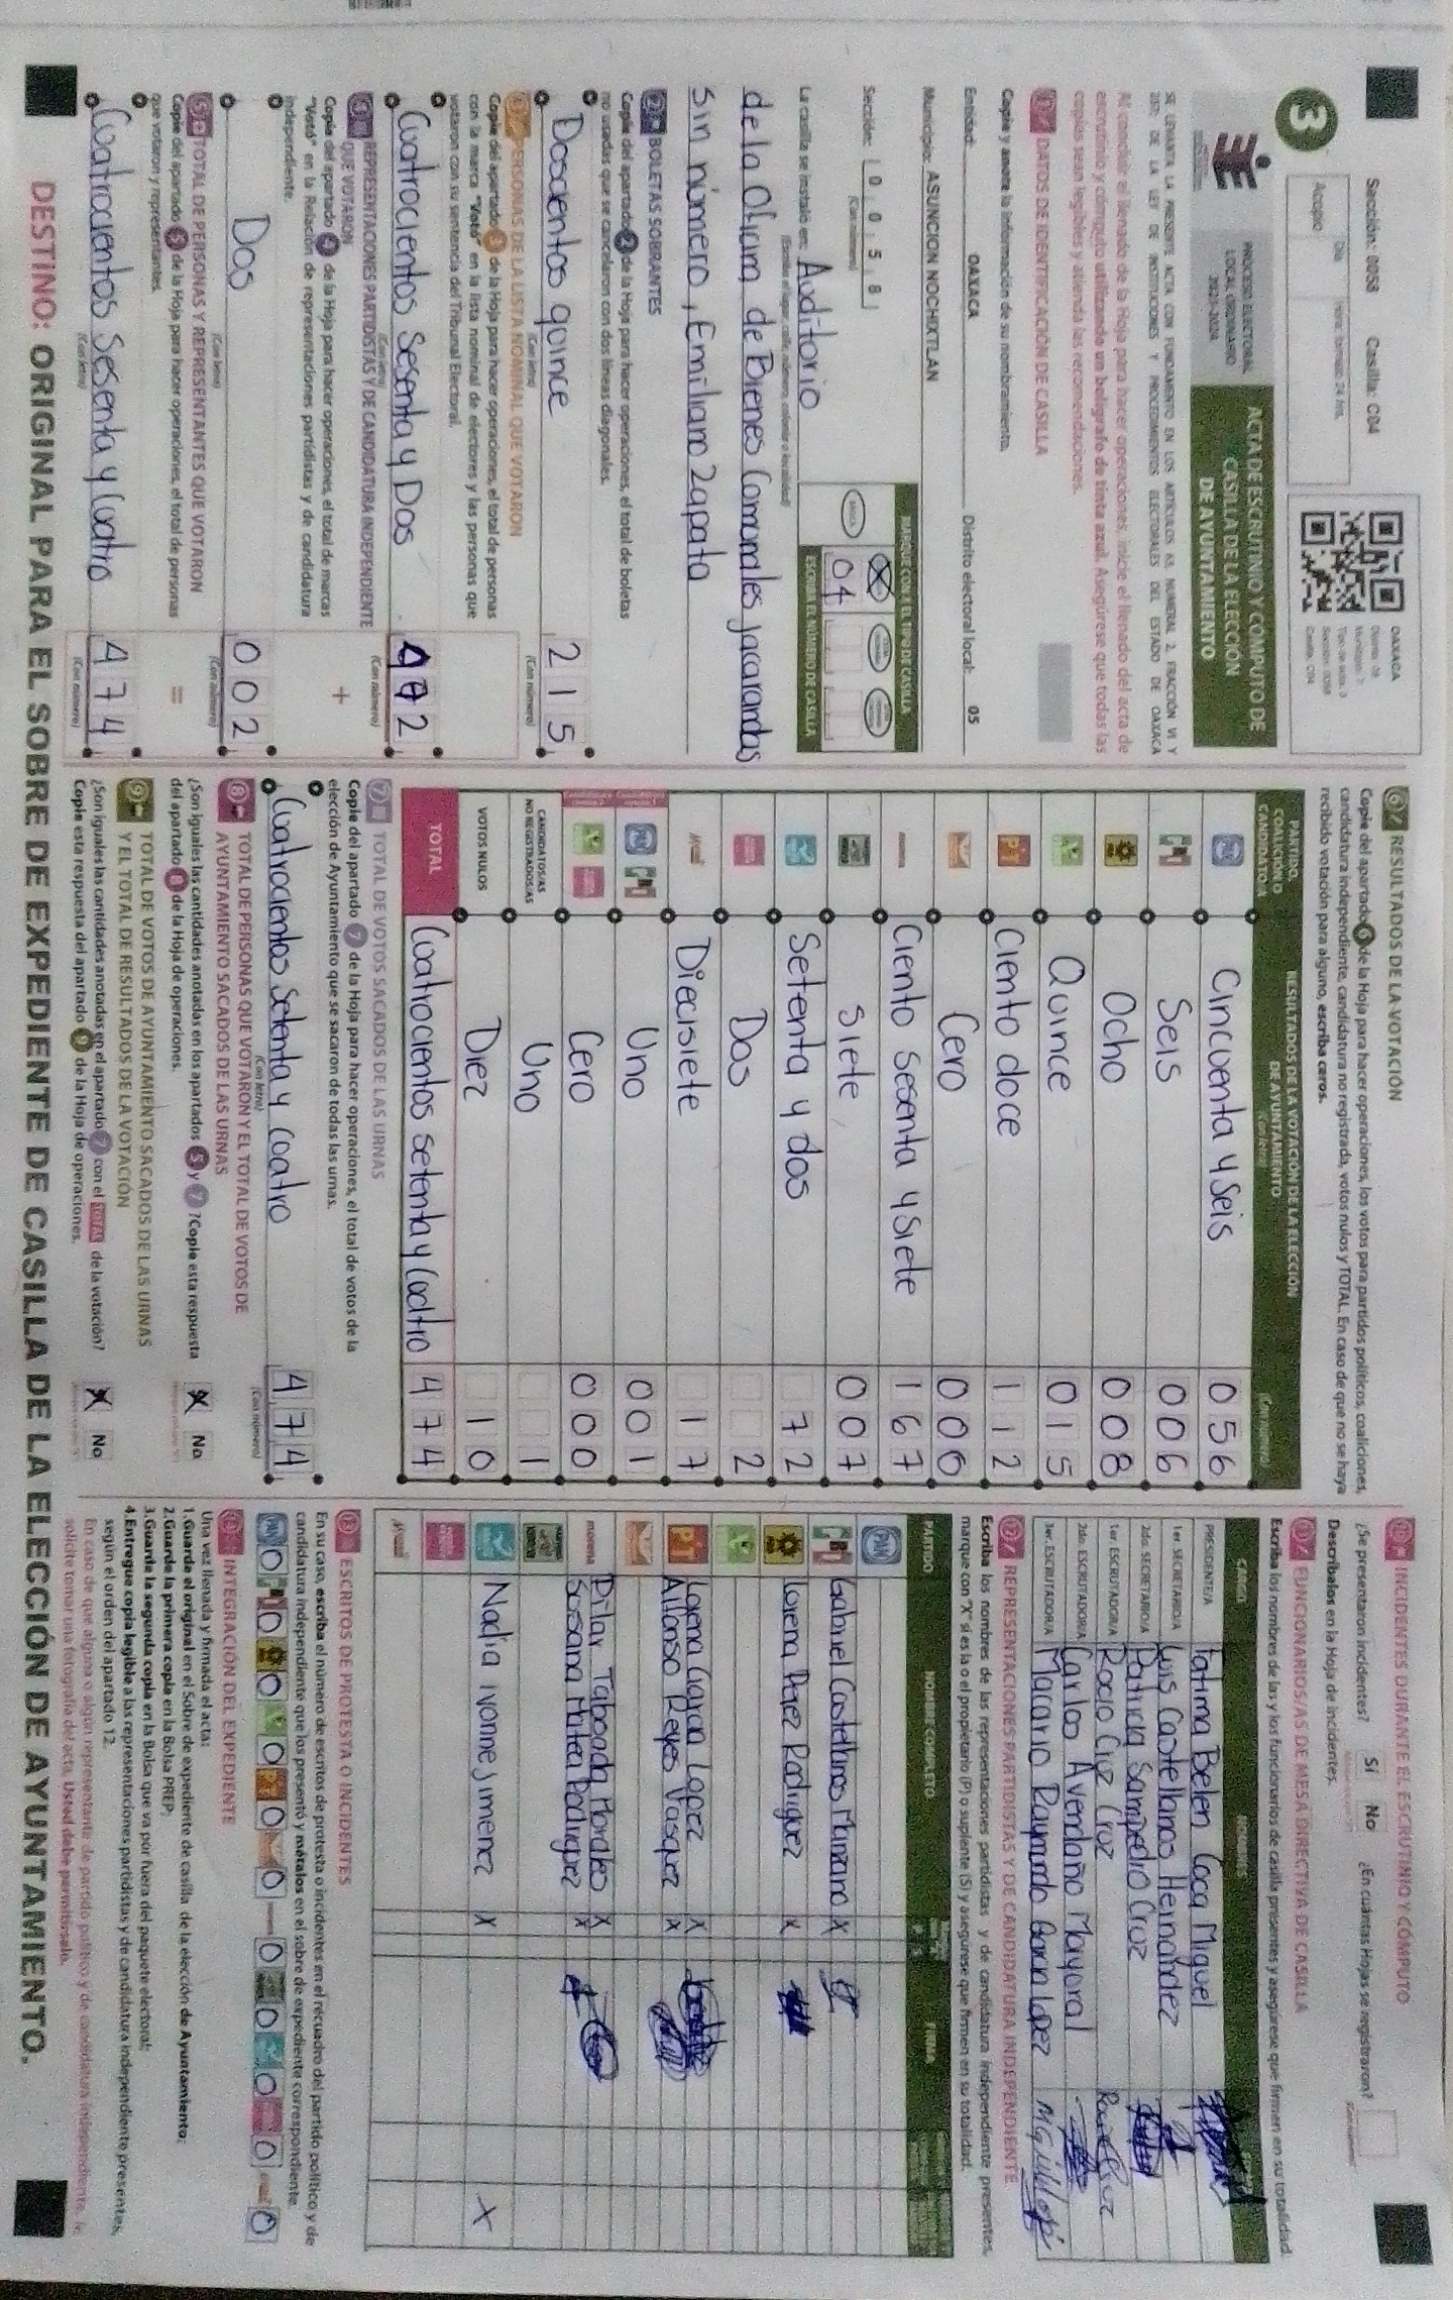 Sección: 0058 Casilla: C04
3
Acopio
Día
Hora formato 24 hrs.
OAXACA
PROCESO ELECTORAL
LOCAL ORDINARIO
2023-2024
ACTA DE ESCRUTINIO Y CÓMPUTO DE
CASILLA DE LA ELECCIÓN
DE AYUNTAMIENTO
SE LEVANTA LA PRESENTE ACTA CON FUNDAMENTO EN LOS ARTÍCULOS 63, NUMERAL 2, FRACCIÓN VI Y
237; DE LA LEY DE INSTITUCIONES Y PROCEDIMIENTOS ELECTORALES DEL ESTADO DE OAXACA
Al concluir el llenado de la Hoja para hacer operaciones, inicie el llenado del acta de
escrutinio y cómputo utilizando un bolígrafo de tinta azul. Asegúrese que todas las
copias sean legibles y atienda las recomendaciones.
1 DATOS DE IDENTIFICACIÓN DE CASILLA
Copie y anote la información de su nombramiento.
Entidad: OAXACA Distrito electoral local: 05
Municipio: ASUNCION NOCHIXTLAN
Sección: 0 0 5 8
(Con número)
MARQUE CON X EL TIPO DE CASILLA
ESCRIBA EL NÚMERO DE CASILLA
04
La casilla se instaló en: Auditorio
(Escriba el lugar: calle, número, colonia o localidad)
de la Oficina de Bienes Comunales Jacarandas
sin número, Emiliano Zapata
2 BOLETAS SOBRANTES
Copie del apartado 2 de la Hoja para hacer operaciones, el total de boletas
no usadas que se cancelaron con dos líneas diagonales.
Doscientos quince 2 1 5
(Con letra) (Con número)
3 PERSONAS DE LA LISTA NOMINAL QUE VOTARON
Copie del apartado 3 de la Hoja para hacer operaciones, el total de personas
con la marca "Votó" en la lista nominal de electores y las personas que
votaron con su sentencia del Tribunal Electoral.
Cuatrocientos Sesenta y Dos 4 7 2
(Con letra) (Con número)
4 REPRESENTACIONES PARTIDISTAS Y DE CANDIDATURA INDEPENDIENTE
QUE VOTARON
+
Copie del apartado 4 de la Hoja para hacer operaciones, el total de marcas
"Votó" en la Relación de representaciones partidistas y de candidatura
independiente.
Dos 0 0 2
(Con letra) (Con número)
5 TOTAL DE PERSONAS Y REPRESENTANTES QUE VOTARON
=
Copie del apartado 5 de la Hoja para hacer operaciones, el total de personas
que votaron y representantes.
Cuatrocientos Sesenta y Cuatro 4 7 4
(Con letra) (Con número)
6 RESULTADOS DE LA VOTACIÓN
Copie del apartado 6 de la Hoja para hacer operaciones, los votos para partidos políticos, coaliciones,
candidatura independiente, candidatura no registrada, votos nulos y TOTAL. En caso de que no se haya
recibido votación para alguno, escriba ceros.
PARTIDO,
COALICIÓN O
CANDIDATO/A
RESULTADOS DE LA VOTACIÓN DE LA ELECCIÓN
DE AYUNTAMIENTO
(Con letra) (Con número)
PAN Cincuenta y Seis 0 5 6
PRI Seis 0 0 6
Ocho 0 0 8
Quince 0 1 5
PT Ciento doce 1 1 2
Cero 0 0 0
morena Ciento Sesenta y Siete 1 6 7
Siete 0 0 7
Setenta y dos 7 2
Dos 2
Diecisiete 1 7
PAN PRI Uno 0 0 1
Cero 0 0 0
CANDIDATOS/AS
NO REGISTRADOS/AS Uno 1
VOTOS NULOS Diez 1 0
TOTAL Cuatrocientos setenta y Cuatro 4 7 4
7 TOTAL DE VOTOS SACADOS DE LAS URNAS
Copie del apartado 7 de la Hoja para hacer operaciones, el total de votos de la
elección de Ayuntamiento que se sacaron de todas las urnas.
Cuatrocientos Setenta y Cuatro 4 7 4
(Con letra) (Con número)
8 TOTAL DE PERSONAS QUE VOTARON Y EL TOTAL DE VOTOS DE
AYUNTAMIENTO SACADOS DE LAS URNAS
¿Son iguales las cantidades anotadas en los apartados 5 y 7? Copie esta respuesta
del apartado 8 de la Hoja de operaciones.
X No
9 TOTAL DE VOTOS DE AYUNTAMIENTO SACADOS DE LAS URNAS
Y EL TOTAL DE RESULTADOS DE LA VOTACIÓN
¿Son iguales las cantidades anotadas en el apartado 7 con el TOTAL de la votación?
Copie esta respuesta del apartado 9 de la Hoja de operaciones.
X No
10 INCIDENTES DURANTE EL ESCRUTINIO Y CÓMPUTO
¿Se presentaron incidentes? Sí No ¿En cuántas Hojas se registraron?
Descríbalos en la Hoja de incidentes.
11 FUNCIONARIOS/AS DE MESA DIRECTIVA DE CASILLA
Escriba los nombres de las y los funcionarios de casilla presentes y asegúrese que firmen en su totalidad.
CARGO NOMBRES FIRMA
PRESIDENTE/A Fatima Belen Coca Miguel
1er. SECRETARIO/A Luis Castellanos Hernandez
2do. SECRETARIO/A Patricia Sampedro Cruz
1er. ESCRUTADOR/A Rocio Cruz Cruz
2do. ESCRUTADOR/A Carlos Avendaño Mayoral
3er. ESCRUTADOR/A Macario Raymundo Garcia Lopez
12 REPRESENTACIONES PARTIDISTAS Y DE CANDIDATURA INDEPENDIENTE
Escriba los nombres de las representaciones partidistas y de candidatura independiente presentes,
marque con "X" si es la o el propietario (P) o suplente (S) y asegúrese que firmen en su totalidad.
PARTIDO NOMBRE COMPLETO FIRMA
PAN
PRI Gabriel Castellanos Manzano X
Lorena Paez Rodriguez X
PT Lorena Garcia Lopez X
Alfonso Reyes Vasquez X
morena Pilar Taboada Morales X
Sossana Matea Rodriguez X
Nadia Ivonne Jimenez X X
13 ESCRITOS DE PROTESTA O INCIDENTES
En su caso, escriba el número de escritos de protesta o incidentes en el recuadro del partido político y de
candidatura independiente que los presentó y métalos en el sobre de expediente correspondiente.
PAN 0 0 0 0 PT 0 0 0 0 0 0 0
14 INTEGRACIÓN DEL EXPEDIENTE
Una vez llenada y firmada el acta:
1.Guarde el original en el Sobre de expediente de casilla de la elección de Ayuntamiento;
2.Guarde la primera copia en la Bolsa PREP;
3.Guarde la segunda copia en la Bolsa que va por fuera del paquete electoral;
4.Entregue copia legible a las representaciones partidistas y de candidatura independiente presentes,
según el orden del apartado 12.
En caso de que alguna o algún representante de partido político y de candidatura independiente, le
solicite tomar una fotografía del acta. Usted debe permitírselo.
DESTINO: ORIGINAL PARA EL SOBRE DE EXPEDIENTE DE CASILLA DE LA ELECCIÓN DE AYUNTAMIENTO.